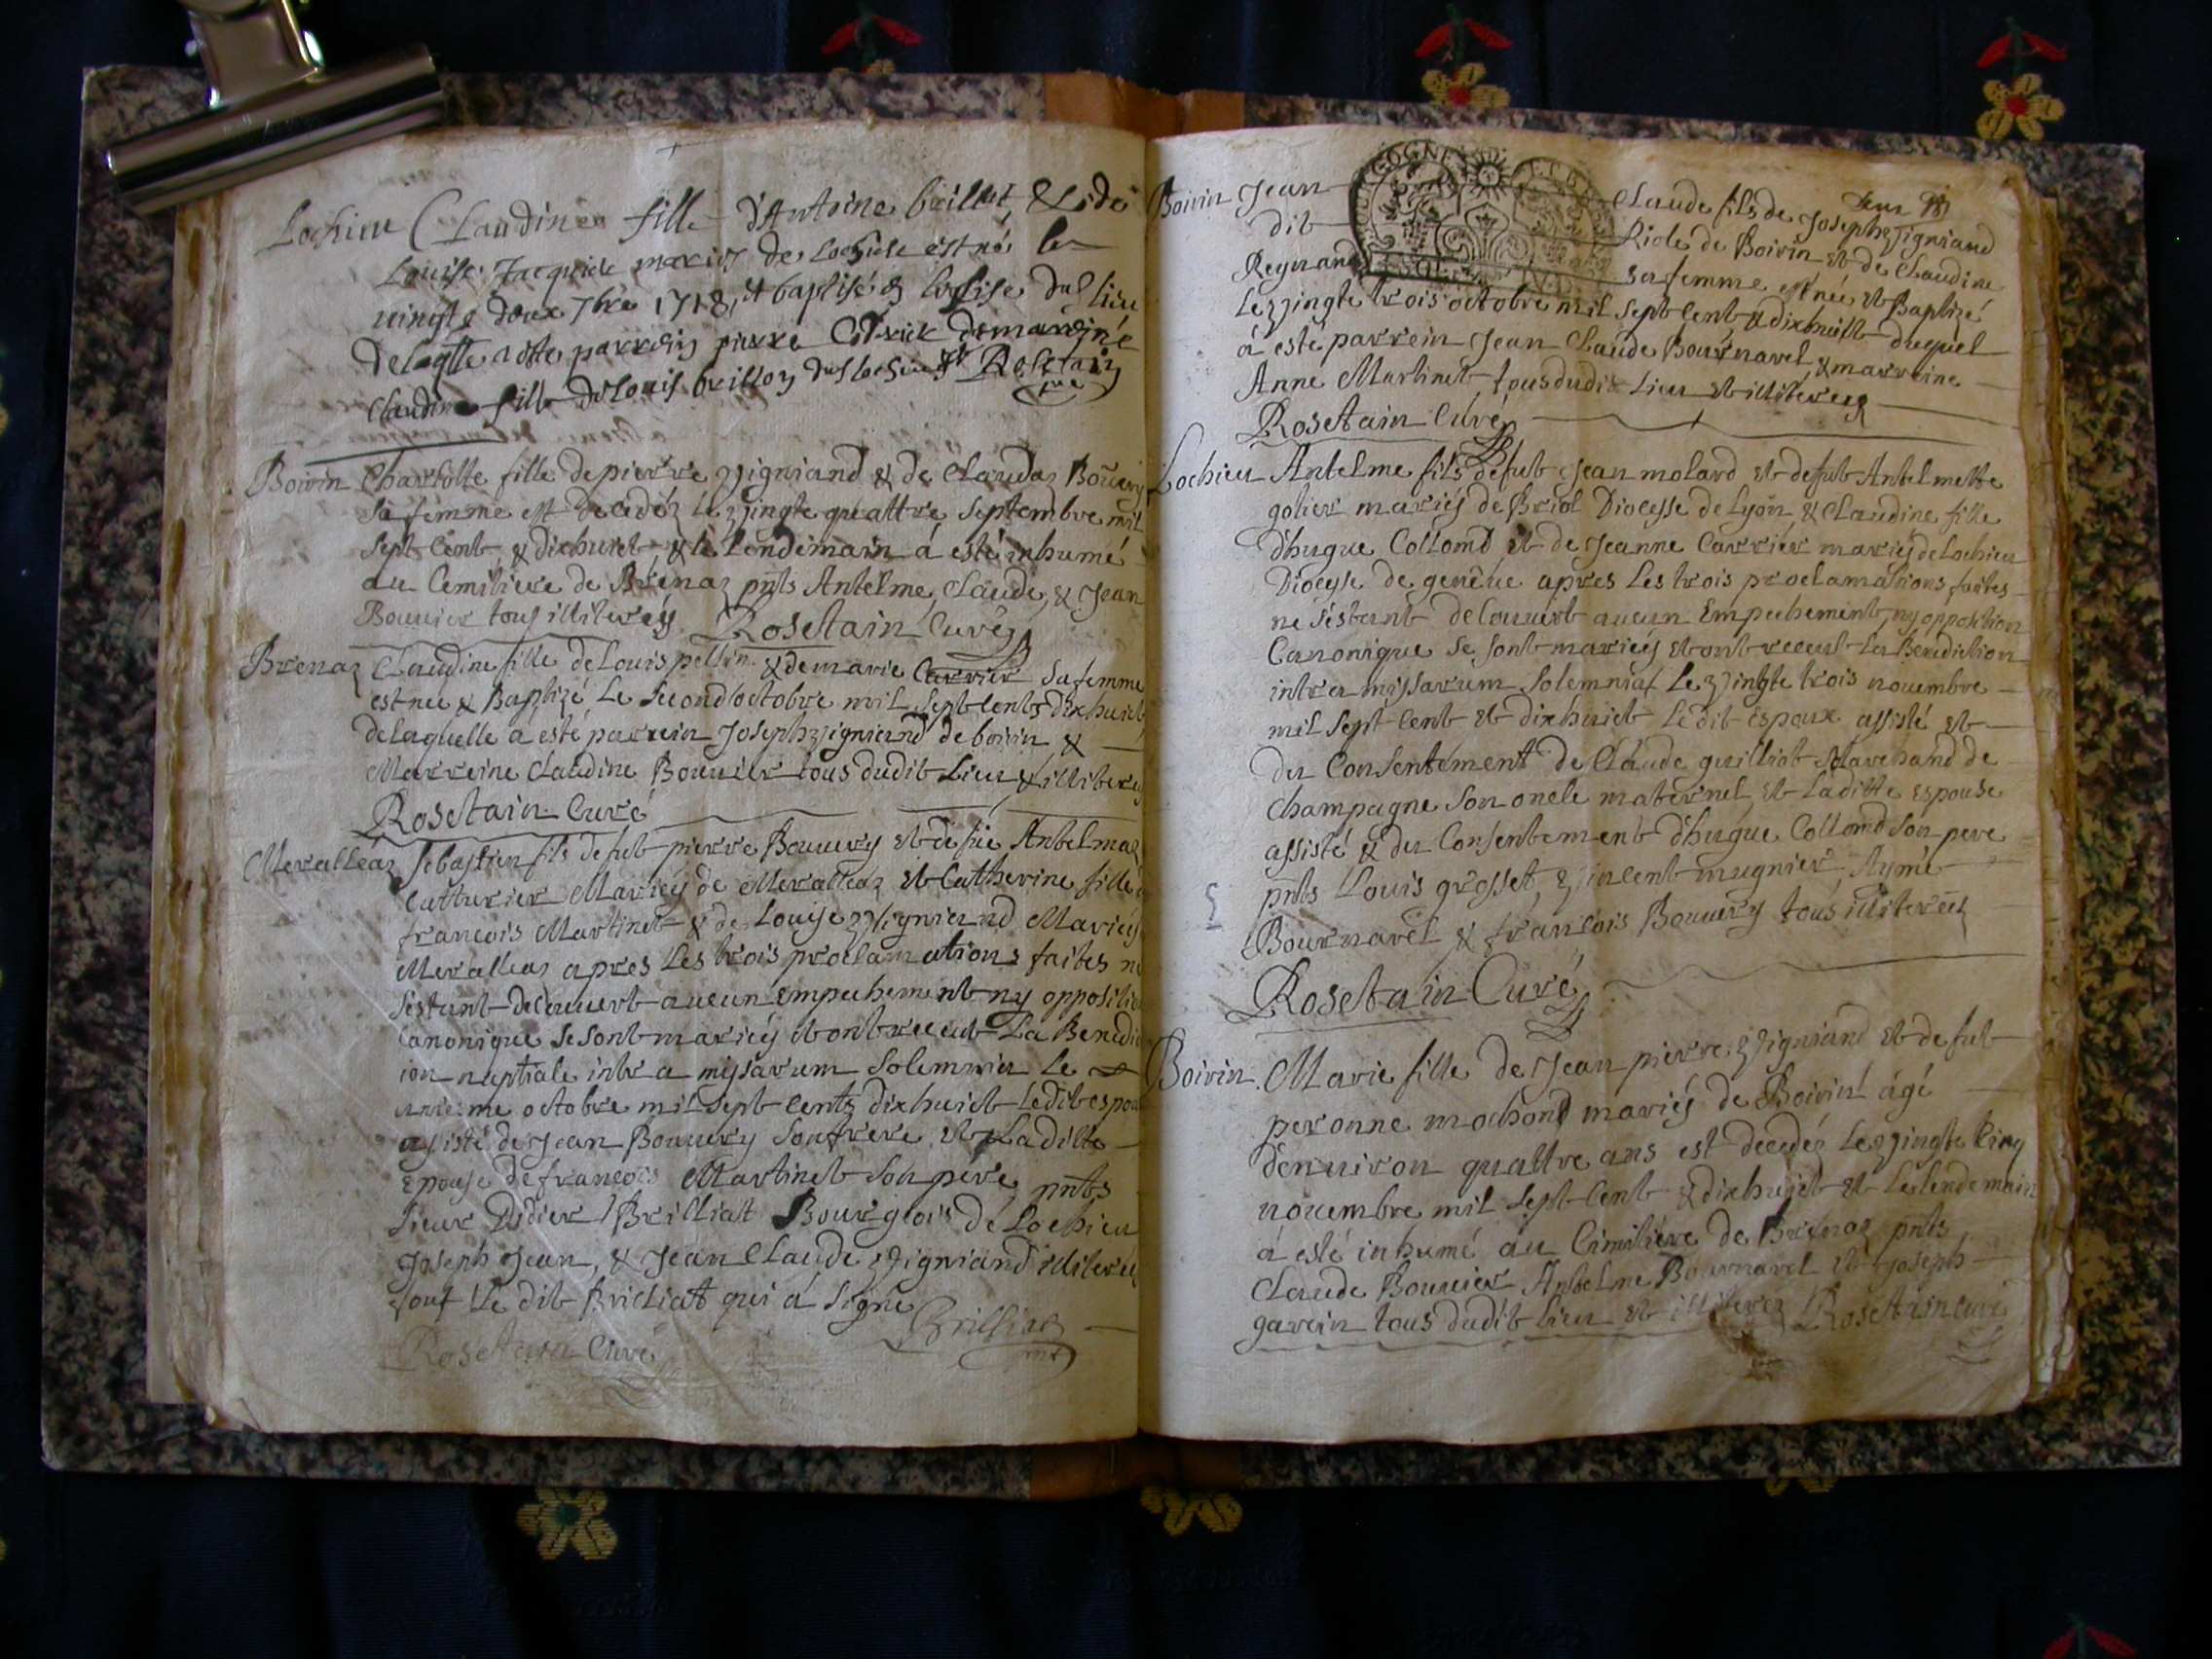 Lochieu Claudine fille d'Antoine brillat & de
Louise Jacquick mariez de Lochieu est né le
vingte deux 7bre 1718, et baptisé lieu
parrein pierre
Claudine fille de Louis brillon Rosetain
curé
Boivin Charlotte fille de pierre vigniand & de Claudaz Bouvery
sa femme est decedéz le vingte quattre septembre mil
sept cent & dixhuict & le lendemain á esté inhumé
au Cemitiere de Brénaz pnts Antelme, Claude, & Jean
Bouvier tous illiterés Rosetain Curé
Brenaz Claudine fille de Louis pellin & de marie Carrier sa femme
est née & Baptizé Le second octobre mil sept cents dixhuict
de laquelle a esté parrein Joseph vigniand de boivin &
Marreine Claudine Bouvier tous dudit Lieu & illiterés
Rosetain Curé
Meralleaz Sebastien fils de fut pierre Bouvery et de fue Antelmaz
Cutturier Mariéz de Meralleaz et Catherine fille
françois Martinet & de Louise vigniand Mariéz
Meralleaz apres Les trois proclamations faites ne
s'estant découvert aucun empechement ny oppositio
Canonique se sont mariéz et ont receut La Benedic
ion nuptiale intra missarum Solemnia Le
unzieme octobre mil sept cents dixhuict Ledit espou
assisté de Jean Bouvery son frere et La ditte
Epouse de françois Martinet son pére pnts
Sieur Didier Brilliat Bourgeois de Lochieu
Joseph Jean, & Jean Claude vigniand illiteréz
sauf Le dit Brilliat qui á signé
Rosetain Curé Brilliat
Boivin Jean Claude fils de Joseph vigniand
dit Riole de Boivin et de Claudine
Reynand sa femme est née et Baptizé
Le vingte trois octobre mil sept cent & dixhuict duquel
á esté parrein Jean Claude Bournavel, & marreine
Anne Martinet tous dudit Lieu et illiterés
Rosetain Curé
Lochieu Antelme fils de fut Jean molard et de fut Antelmette
golier mariés de Briol Diocesse de Lyon & Claudine fille
d'hugue Collomd et de Jeanne Carrier mariés de Lochieu
Diocese de genéve apres Les trois proclamations faites
ne s'éstant découvert aucun Empechement, ny opposition
Canonique se sont mariéz et ont receut La Benediction
intra missarum Solemnia Le vingte trois novembre
mil sept cent et dixhuict Le dit Espoux assisté et
du Consentement de Claude guilliot Marchand de
Champagne son oncle maternel et La ditte Espouse
assisté & du Consentement d'hugue Collomd son pere
pnts Louis grosset, vincent mugnier, Aymé
Bournavel & françois Bouvery tous illiteréz
Rosetain Curé
Boivin Marie fille de Jean pierre vigniand et de fut
peronne mochond mariés de Boivin ágé
d'environ quattre ans est decedéz Le vingte Cinq
novembre mil sept Cent & dixhuict et Le lendemain
á esté inhumé au Cimitiére de Brénaz pnts
Claude Bouvier Antelme Bournavel et Joseph
gavein tous dudit Lieu et illiterez Rosetain Curé